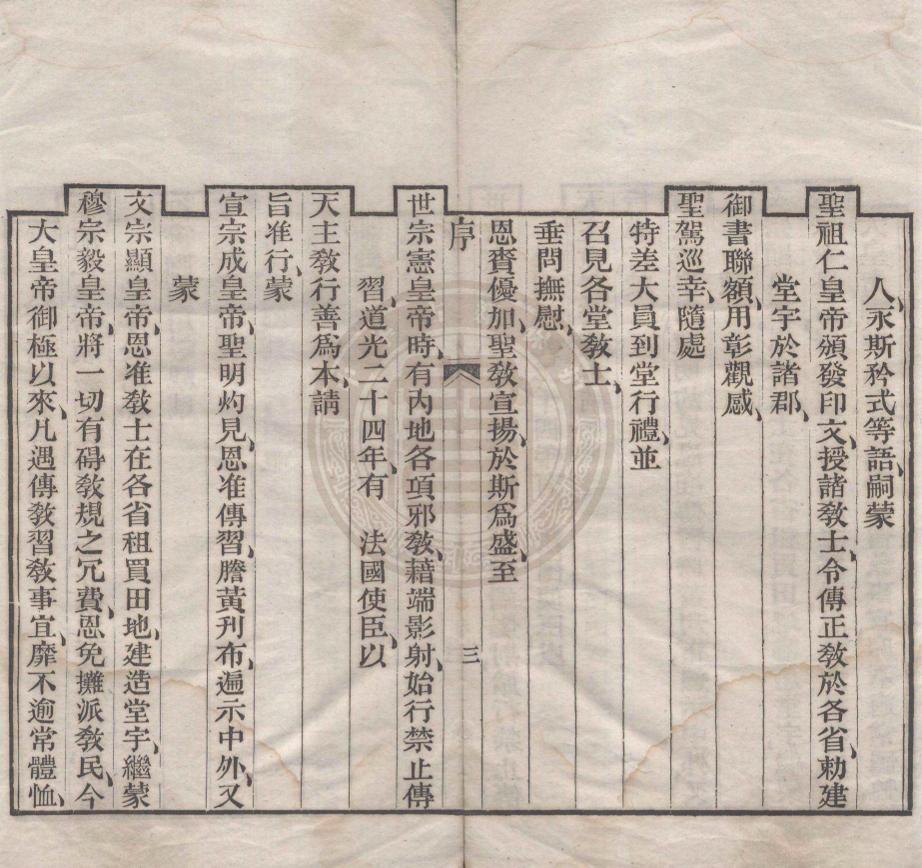 人、永斯矜式等語、嗣蒙
聖祖仁皇帝頒發印文、授諸教士、令傳正教於各省、勅建
堂宇於諸郡、
御書聯額、用彰觀感、
聖駕巡幸、隨處
特差大員到堂行禮、並
召見各堂教士、
垂問撫慰、
恩賚優加、聖教宣揚、於斯爲盛、至
序
三
世宗憲皇帝時、有內地各項邪教、藉端影射、始行禁止傳
習、道光二十四年、有 法國使臣、以
天主教行善爲本、請
旨准行、蒙
宣宗成皇帝、聖明灼見、恩准傳習、謄黃刋布、遍示中外、又
蒙
文宗顯皇帝、恩准教士在各省租買田地、建造堂宇、繼蒙
穆宗毅皇帝、將一切有碍教規之冗費、恩免攤派教民、今
大皇帝御極以來、凡遇傳教習教事宜、靡不逾常體恤、